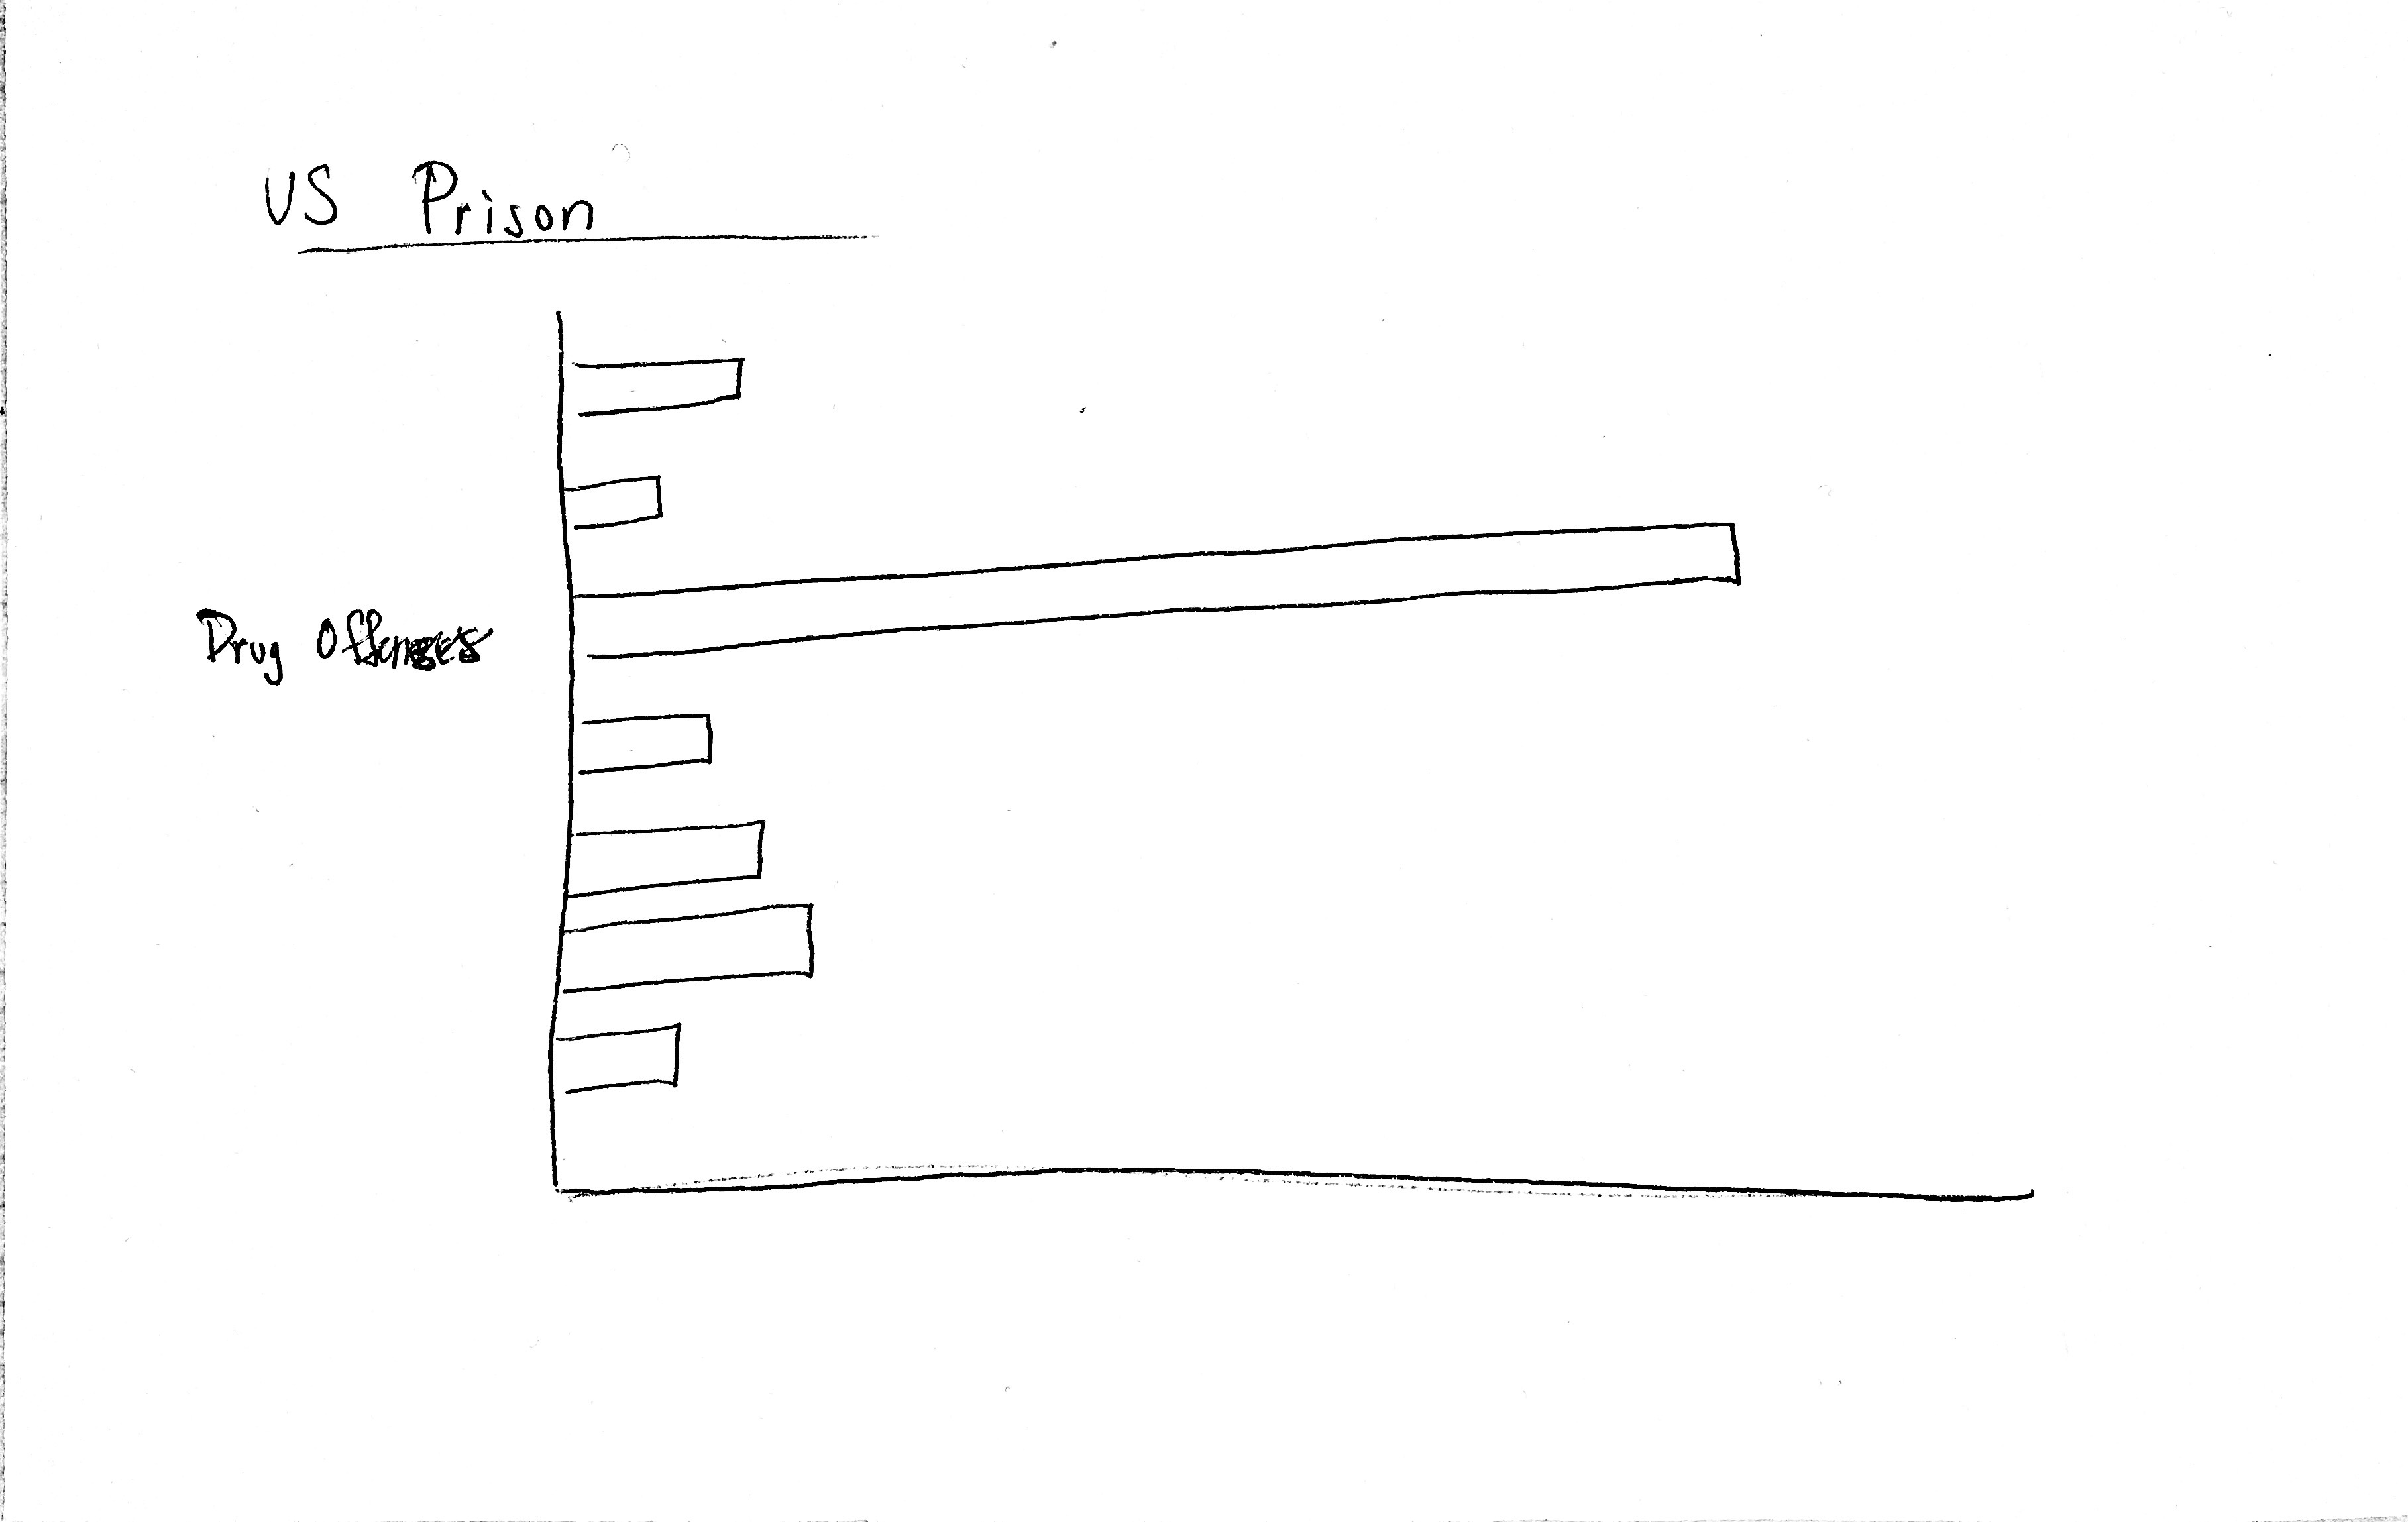 US Prison
Drug Offenses